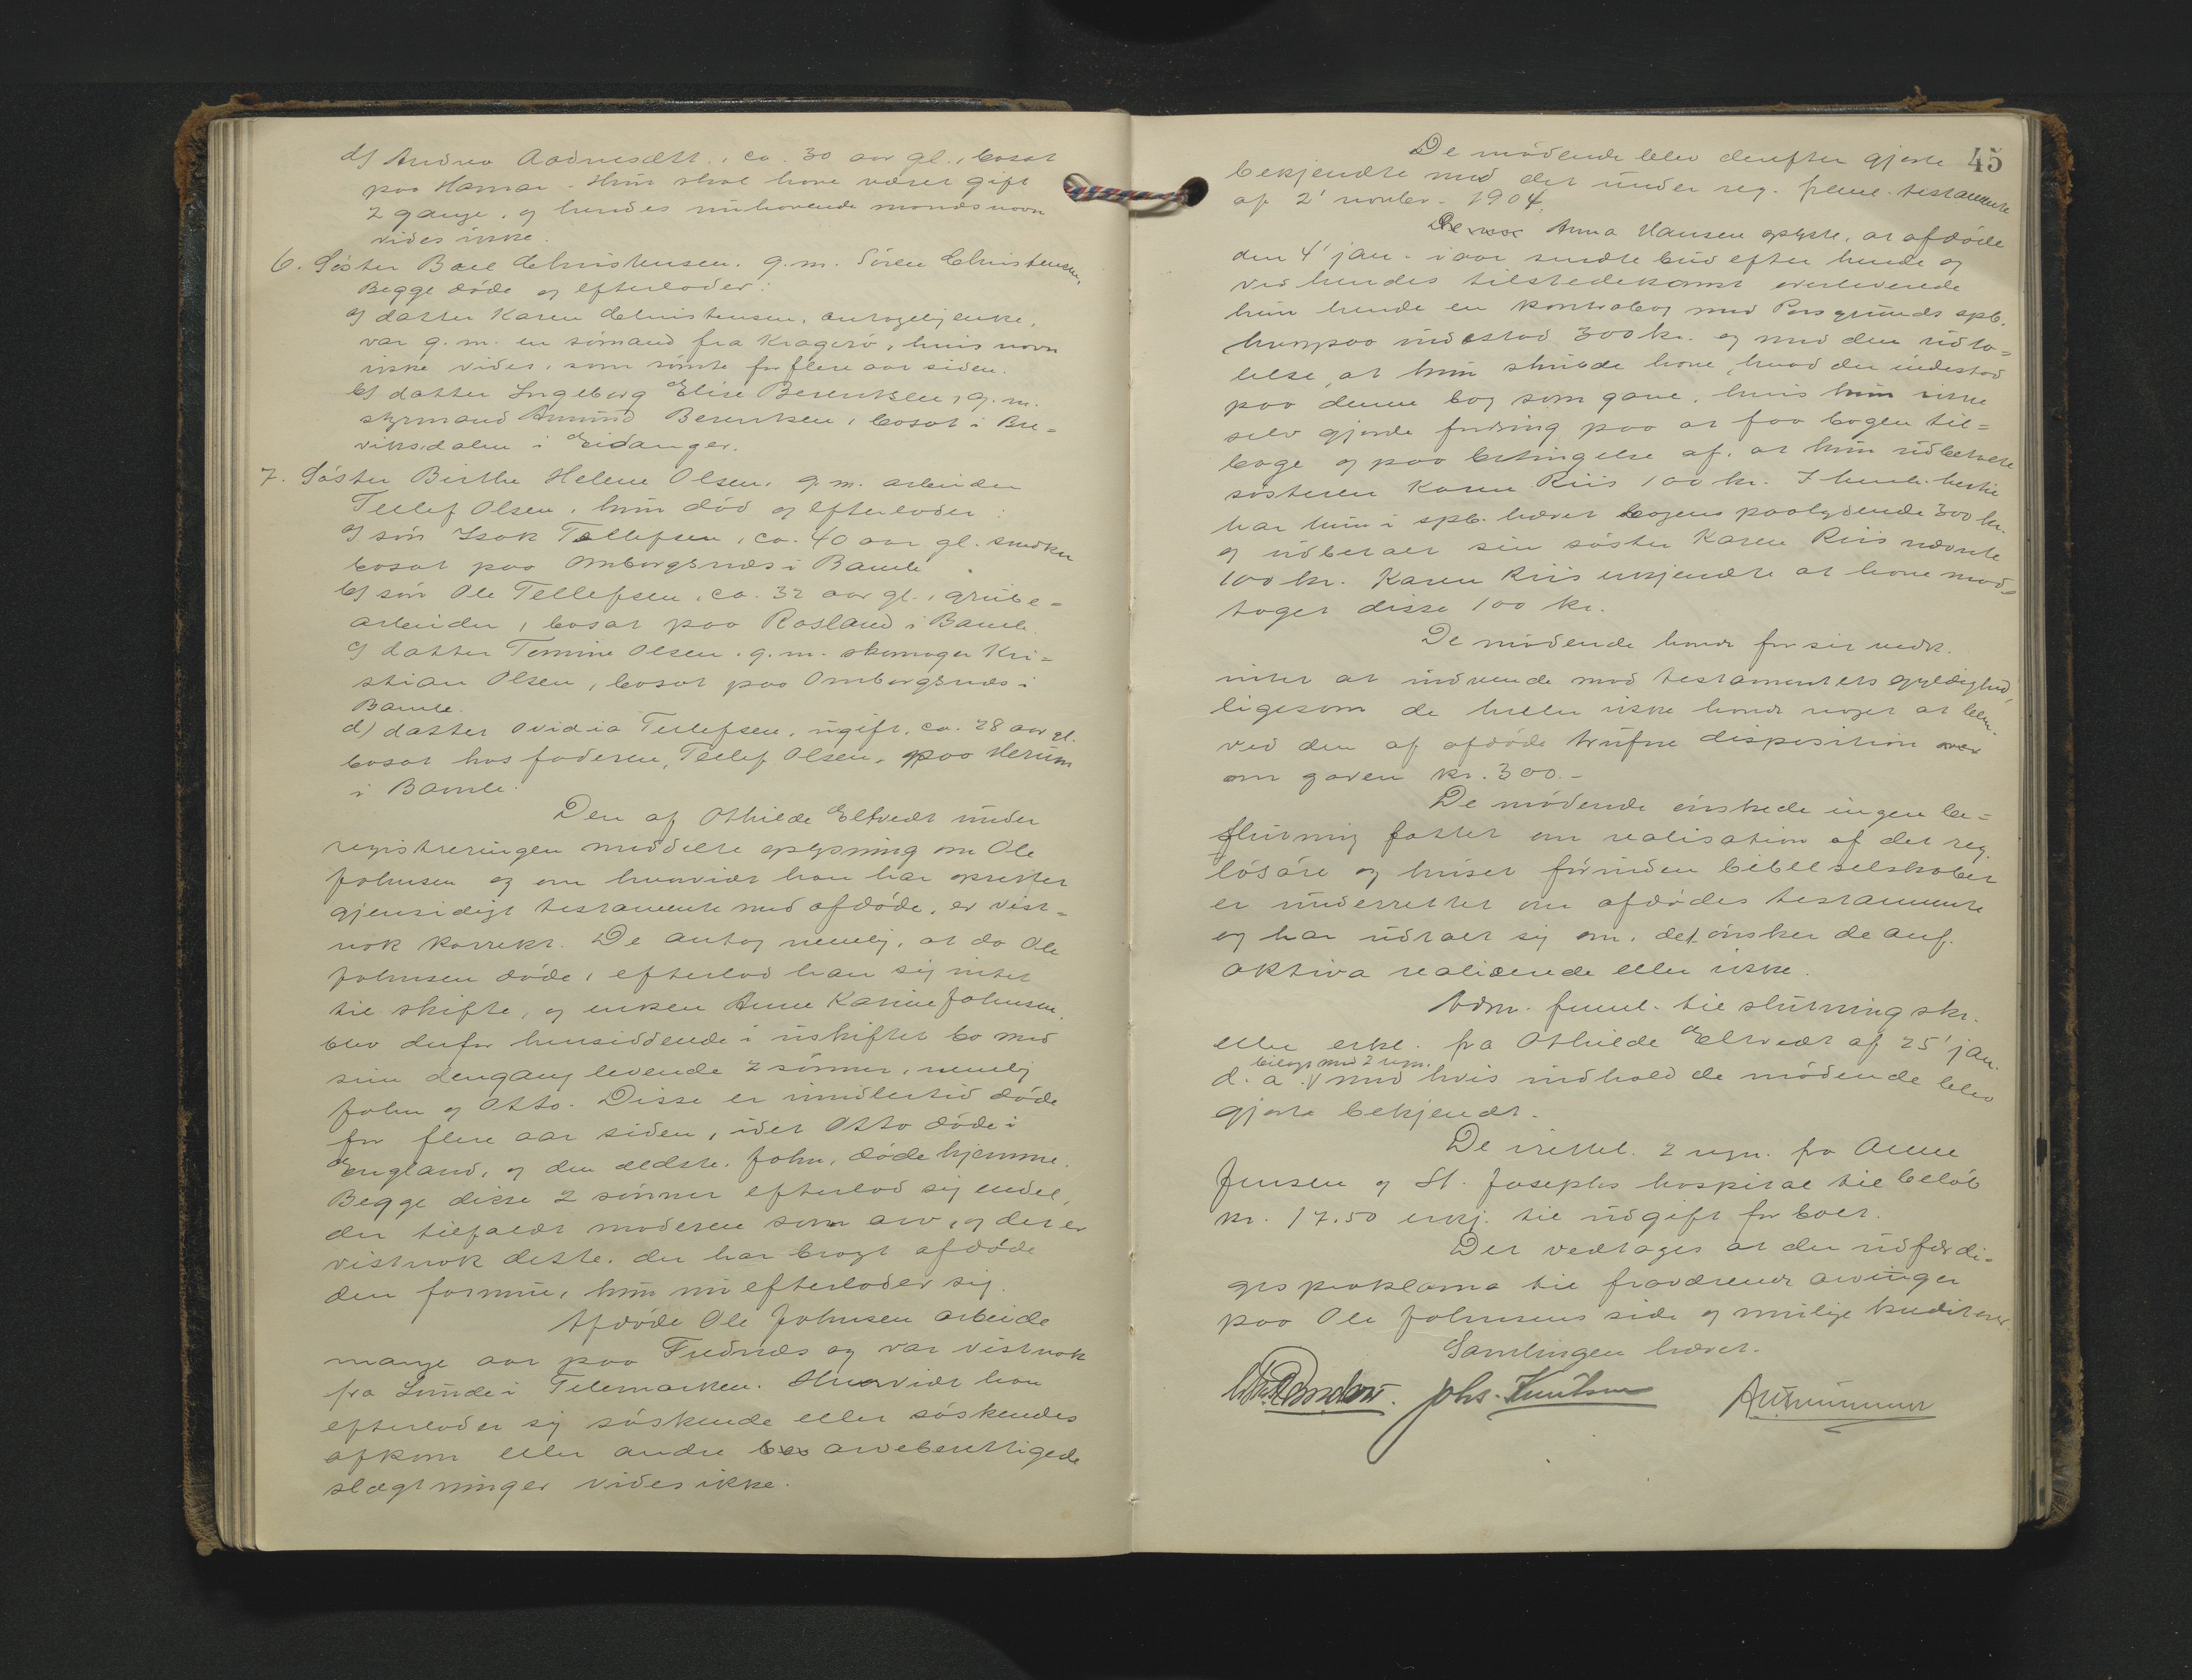 d) Andrea Aadnesdtt., ca. 30 aar gl., bosat
paa Hamar. Hun skal have været gift
2 gange, og hendes nuhavende mands navn
vides ikke.
6. Søster Boel Christensen, g. m. Søren Christensen,
Begge døde og efterlader:
a) datter Karen Christensen, antagelig enke,
var g. m. en sømand fra Kragerø, hvis navn
ikke vides, som rømte for flere aar siden.
b) datter Ingeborg Elise Berentsen, g. m.
styrmand Amund Berentsen, bosat i Bre=
viksdalen i Eidanger.
7. Søster Birthe Helene Olsen, g. m. arbeider
Tellef Olsen, hun død og efterlader:
a) søn Isak Tellefsen, ca. 40 aar gl. snedker
bosat paa Omborgsnæs i Bamle.
b) søn Ole Tellefsen, ca. 32 aar gl., grube=
arbeider, bosat paa Rosland i Bamle.
c) datter Tomine Olsen, g. m. skomager Kri=
stian Olsen, bosat paa Omborgsnæs i
Bamle.
d) datter Ovidia Tellefsen, ugift, ca. 28 aar gl.
bosat hos faderen, Tellef Olsen, paa Herum
i Bamle.
Den af Othilde Eltvedt under
registreringen meddelte oplysning om Ole
Johnsen og om hvorvidt han har oprettet
gjensidigt testamente med afdøde, er vist=
nok korrekt. De antog nemlig, at da Ole
Johnsen døde, efterlod han sig intet
til skifte, og enken Anne Karine Johnsen,
blev derfor hensiddende i uskiftet bo med
sine dengang levende 2 sønner, nemlig
John og Otto. Disse er imidlertid døde
for flere aar siden, idet Otto døde i
England, og den ældste, John, døde hjemme.
Begge disse 2 sønner efterlod sig endel,
der tilfaldt moderen som arv, og det er
vistnok dette, der har bragt afdøde
den formue, hun nu efterlader sig.
Afdøde Ole Johnsen arbeide
mange aar paa Frednæs og var vistnok
fra Lunde i Telemarken. Hvorvidt han
efterlader sig søskende eller søskendes
afkom eller andre arveberettigede
slægtninger vides ikke.
45
De mødende blev derefter gjorte
bekjendte med det under reg. freml. testamente
af 2' novbr. 1904.
Anna Hansen oplyste, at afdøde
den 4' jan. i aar sendte bud efter hende og
ved hendes tilstedekomst overleverede
hun hende en kontrabog med Porsgrunds spb.
hvorpaa indestod 300 kr. og med den udta=
lelse, at hun skulde have, hvad der indestod
paa denne bog som gave, hvis hun ikke
selv gjorde fordring paa at faa bogen til=
bage og paa betingelse af, at hun udbetalte
søsteren Karen Riis 100 kr. I henh. hertil
har hun i spb. hævet bogens paalydende 300 kr.
og udbetalt sin søster Karen Riis nævnte
100 kr. Karen Riis erkjendte at have mod=
taget disse 100 kr.
De mødende havde for sit vedk.
intet at indvende mod testamentets gyldighed,
ligesom de heller ikke havde noget at bem.
ved den af afdøde trufne disposition
om gaven kr. 300.-
De mødende ønskede ingen be=
slutning fattet om realisation af det reg.
løsøre og huset førinden bibelselskabet
er underrettet om afdødes testamente
og har udtalt sig om, det ønsker de anf.
aktiva realiserede eller ikke.
Adm. freml. til slutning skr.
eller erkl. fra Othilde Eltvedt af 25' jan.
bilagt med 2 regn.
d. a. √ med hvis indhold de mødende blev
gjorte bekjendt.
De irettel. 2 regn. fra Anne
Jensen og St. Josephs hospital til beløb
kr. 17.50 erkj. til udgift for boet.
Det vedtages at der udfærdi=
ges proklama til fraværende arvinger
paa Ole Johnsens side og mulige kreditorer.
Samlingen hævet.
Johs. Knutsen